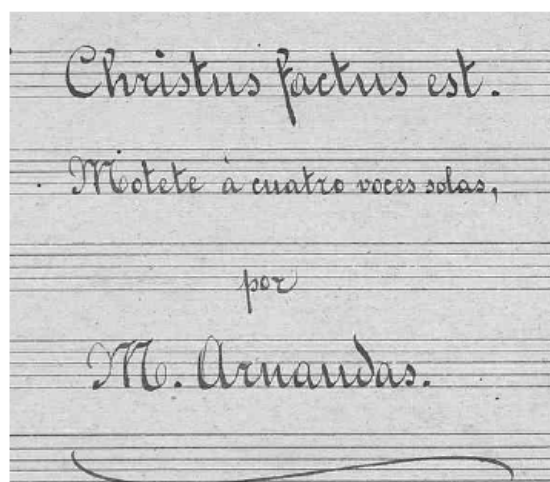 Christus factus est.
Motete à cuatro voces solas,
por
M. Arnaudas.